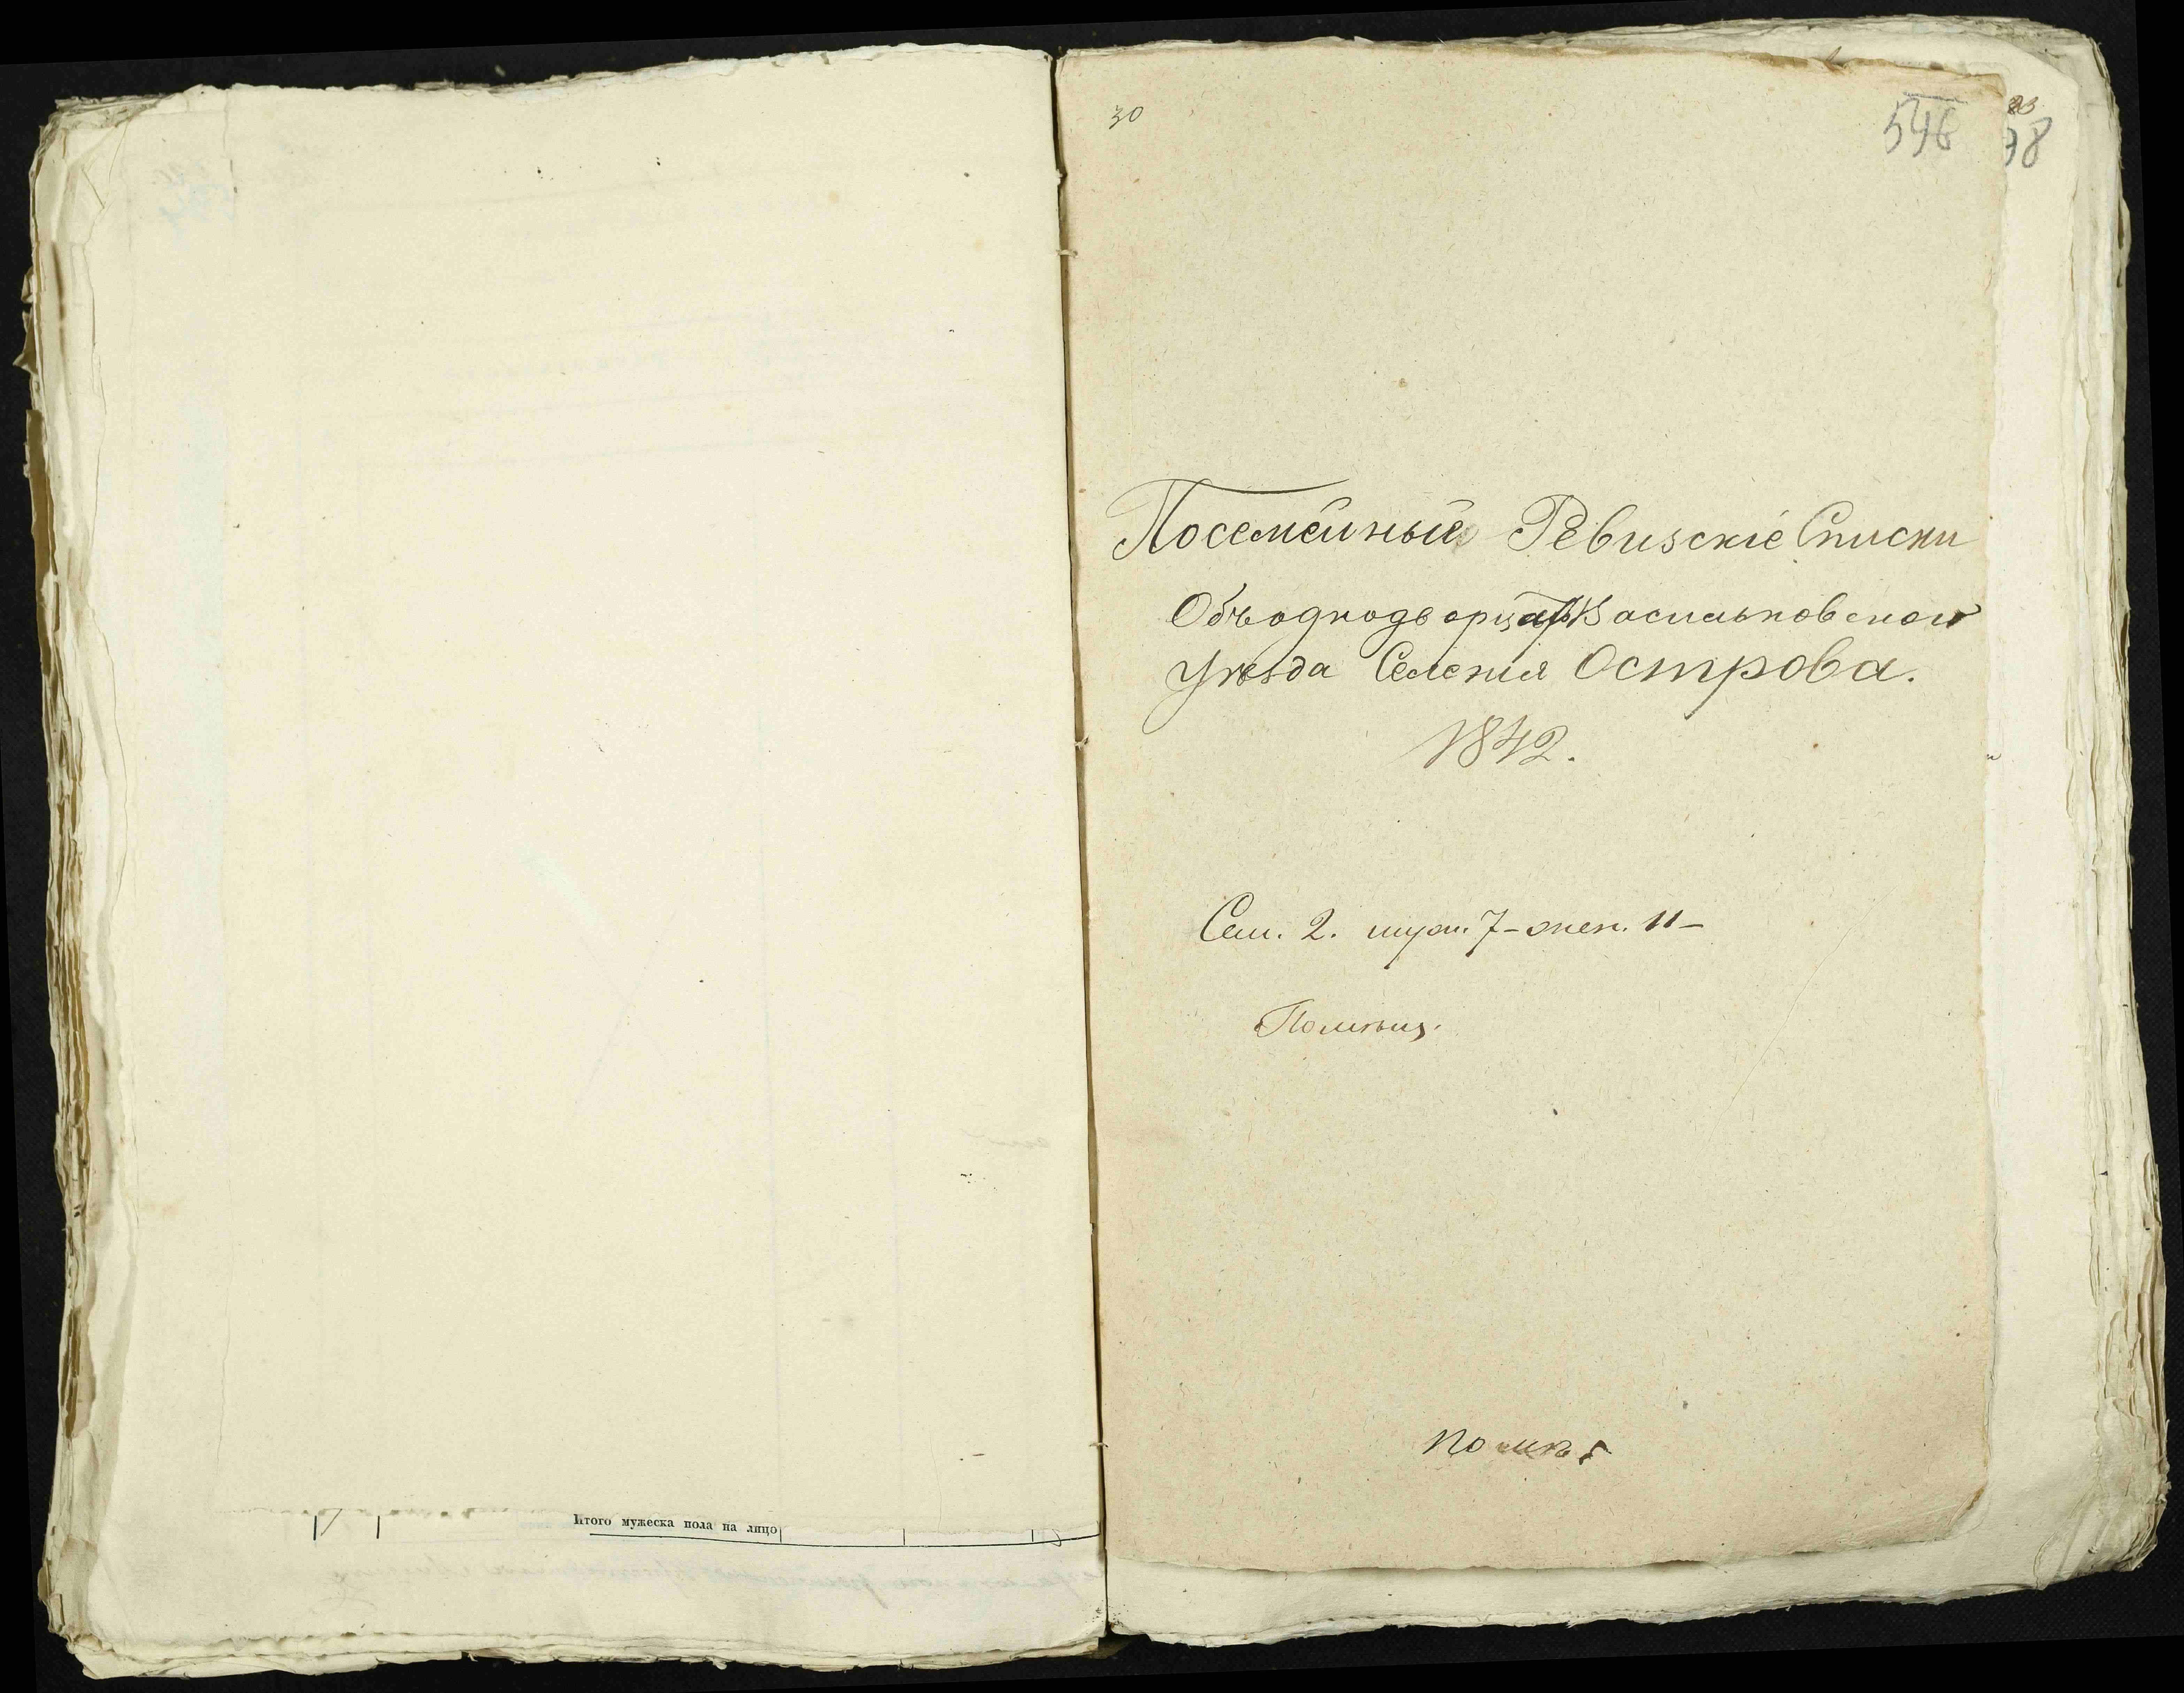 Итого мужеска пола на лицо
30
546
78
Посемейные Ревизскіе Списки
Объ однодворцахъ Васильковскаго
Уѣзда Селенія Острова.
1842.
Сем. 2. муж. 7 - жен. 11 -